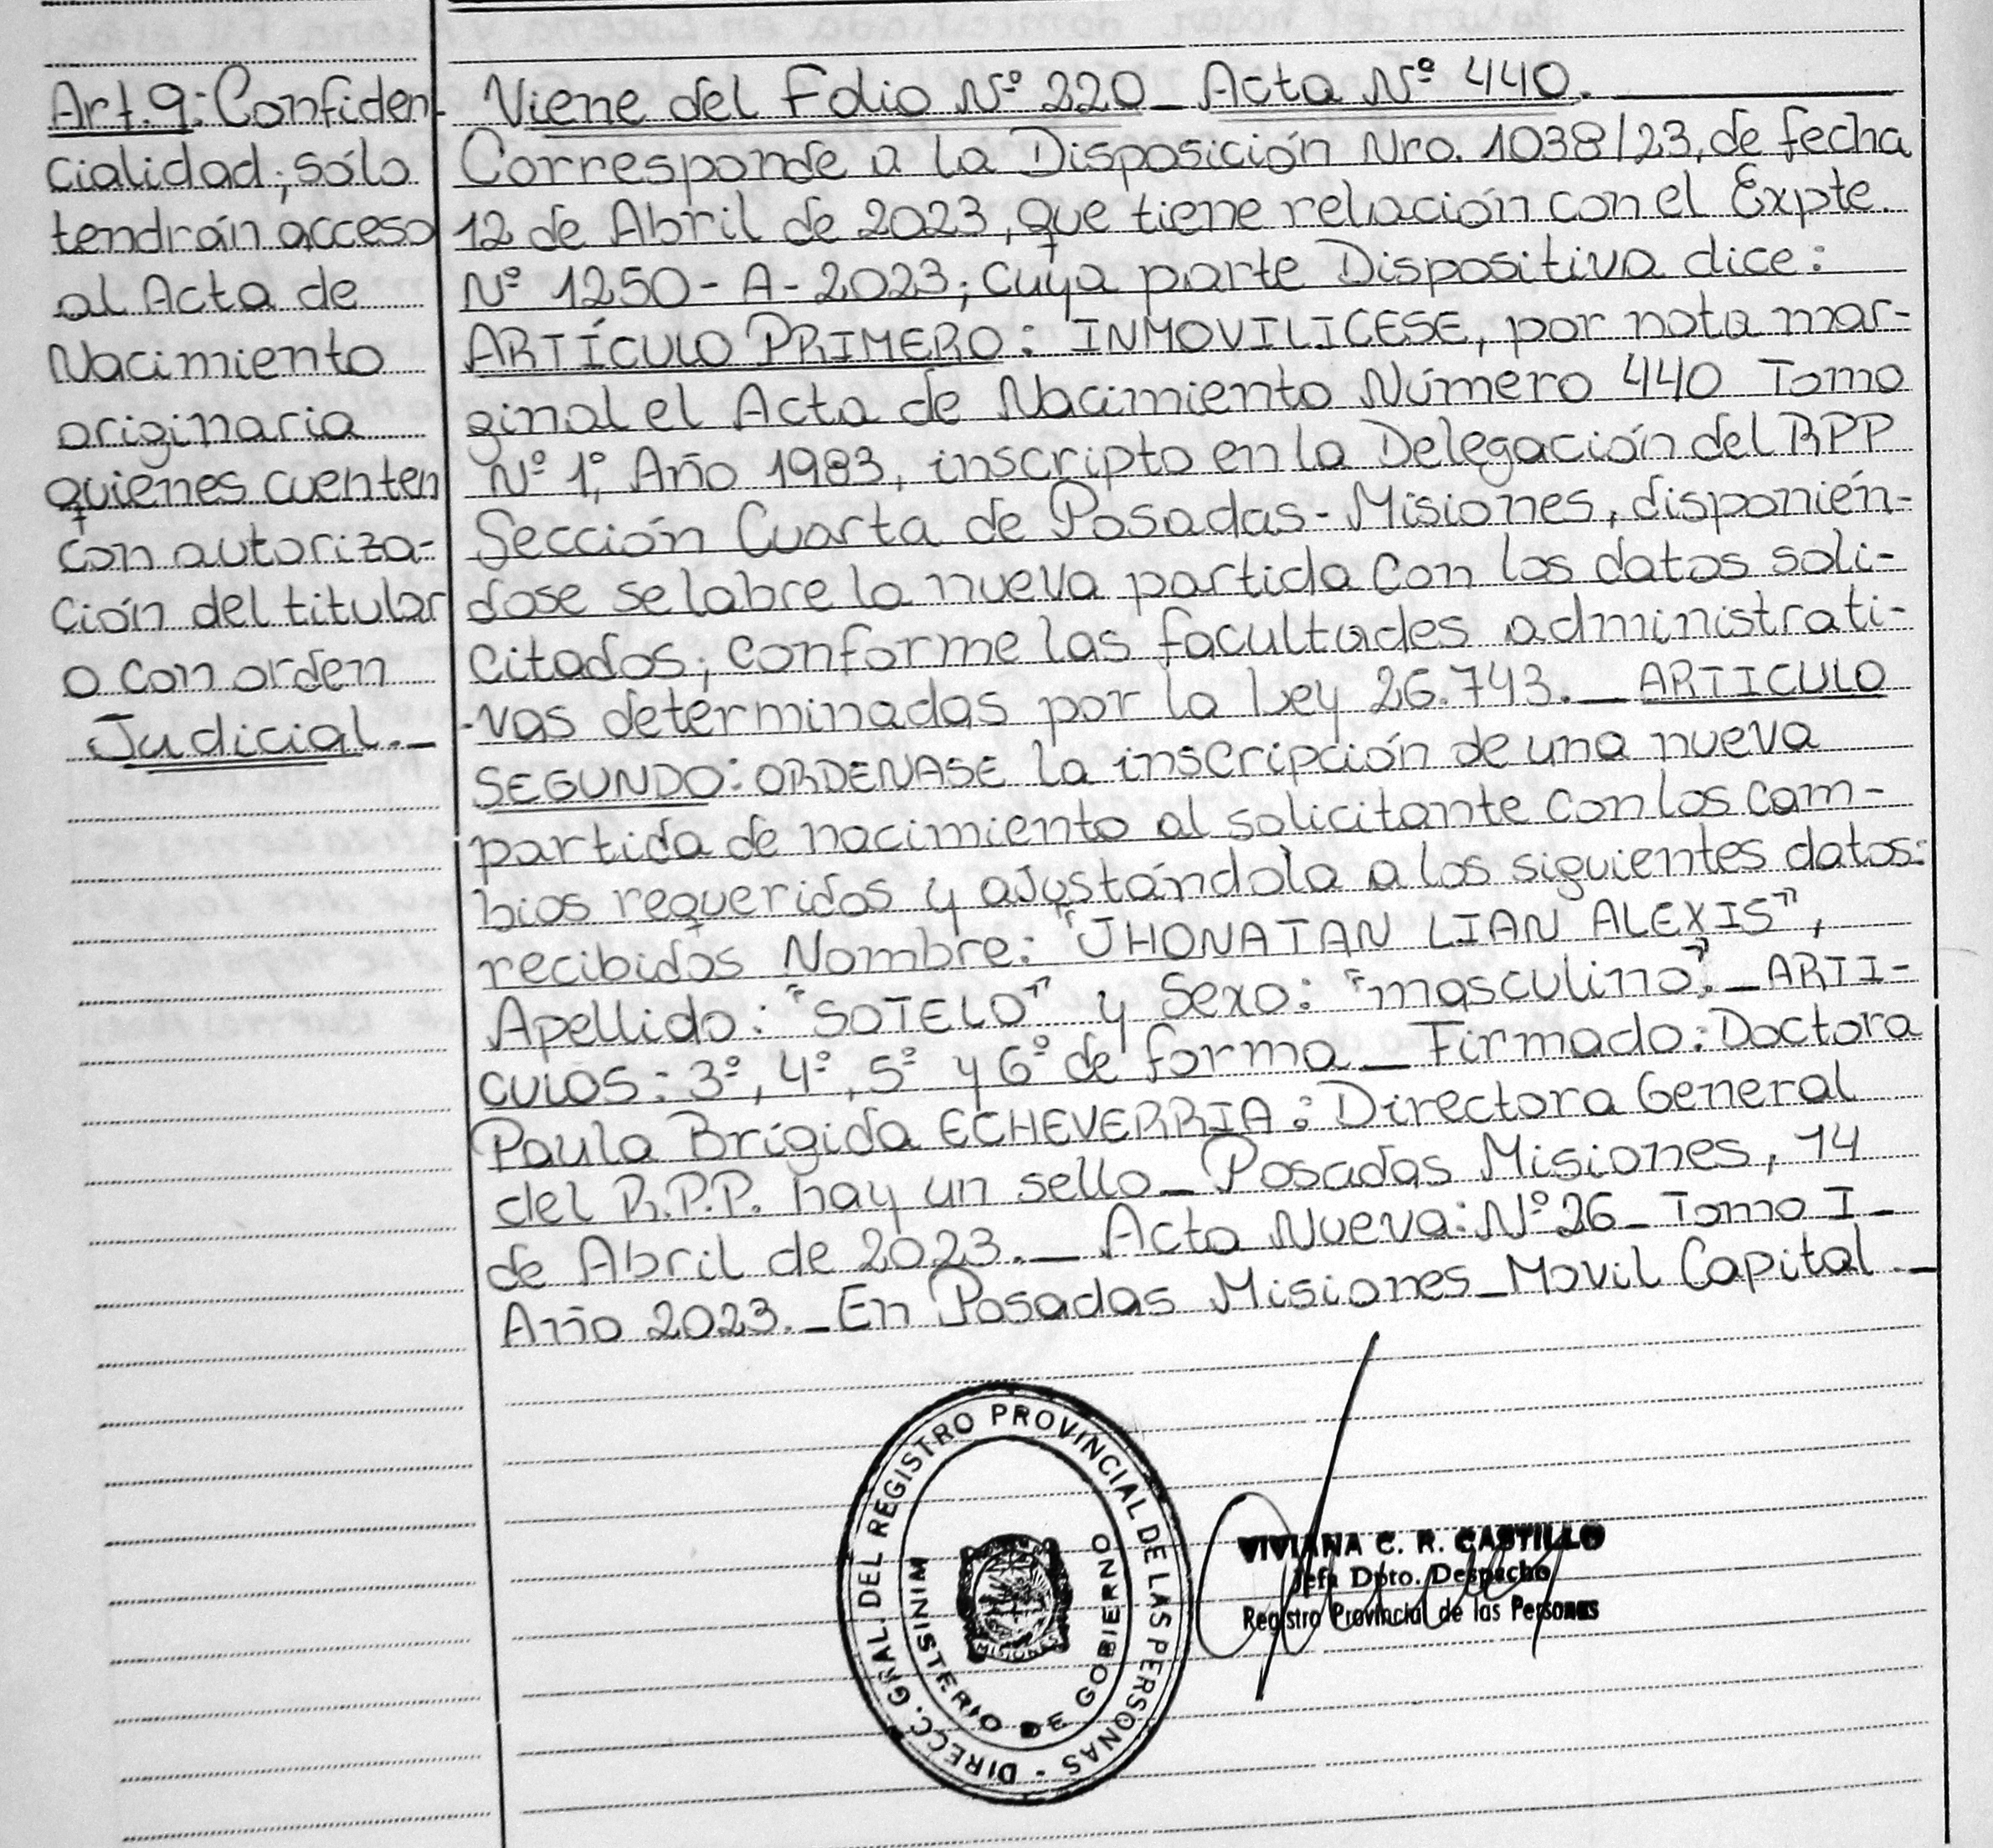 Art.9: Confiden-
cialidad; sólo
tendrán acceso
al Acta de
Nacimiento
originaria
quienes cuenten
con autoriza-
ción del titular
o con orden
Judicial._
Viene del Folio Nº 220_ Acta Nº 440.
Corresponde a la Disposición Nro. 1038/23, de fecha
12 de Abril de 2023, que tiene relación con el Expte.
Nº 1250-A-2023; cuya parte Dispositiva dice:
ARTÍCULO PRIMERO: INMOVILICESE, por nota mar-
ginal el Acta de Nacimiento Número 440 Tomo
Nº 1º, Año 1983, inscripto en la Delegación del RPP
Sección Cuarta de Posadas-Misiones, disponién-
dose se labre la nueva partida con los datos soli-
citados; conforme las facultades administrati-
-vas determinadas por la Ley 26.743._ ARTICULO
SEGUNDO: ORDENASE la inscripción de una nueva
partida de nacimiento al solicitante con los cam-
bios requeridos y ajustándola a los siguientes datos:
recibidos Nombre: "JHONATAN LIAN ALEXIS",
Apellido: "SOTELO" y Sexo: "masculino"._ ARTI-
CULOS: 3º, 4º, 5º y 6º de forma_ Firmado: Doctora
Paula Brígida ECHEVERRIA: Directora General
del R.P.P. hay un sello_ Posadas Misiones, 14
de Abril de 2023._ Acta Nueva: Nº 26_ Tomo I_
Año 2023._ En Posadas Misiones_Movil Capital._
DIRECC. GRAL. DEL REGISTRO PROVINCIAL DE LAS PERSONAS -
MINISTERIO DE GOBIERNO
MISIONES
VIVIANA C. R. CASTILLO
Jefa Dpto. Despacho
Registro Provincial de las Personas